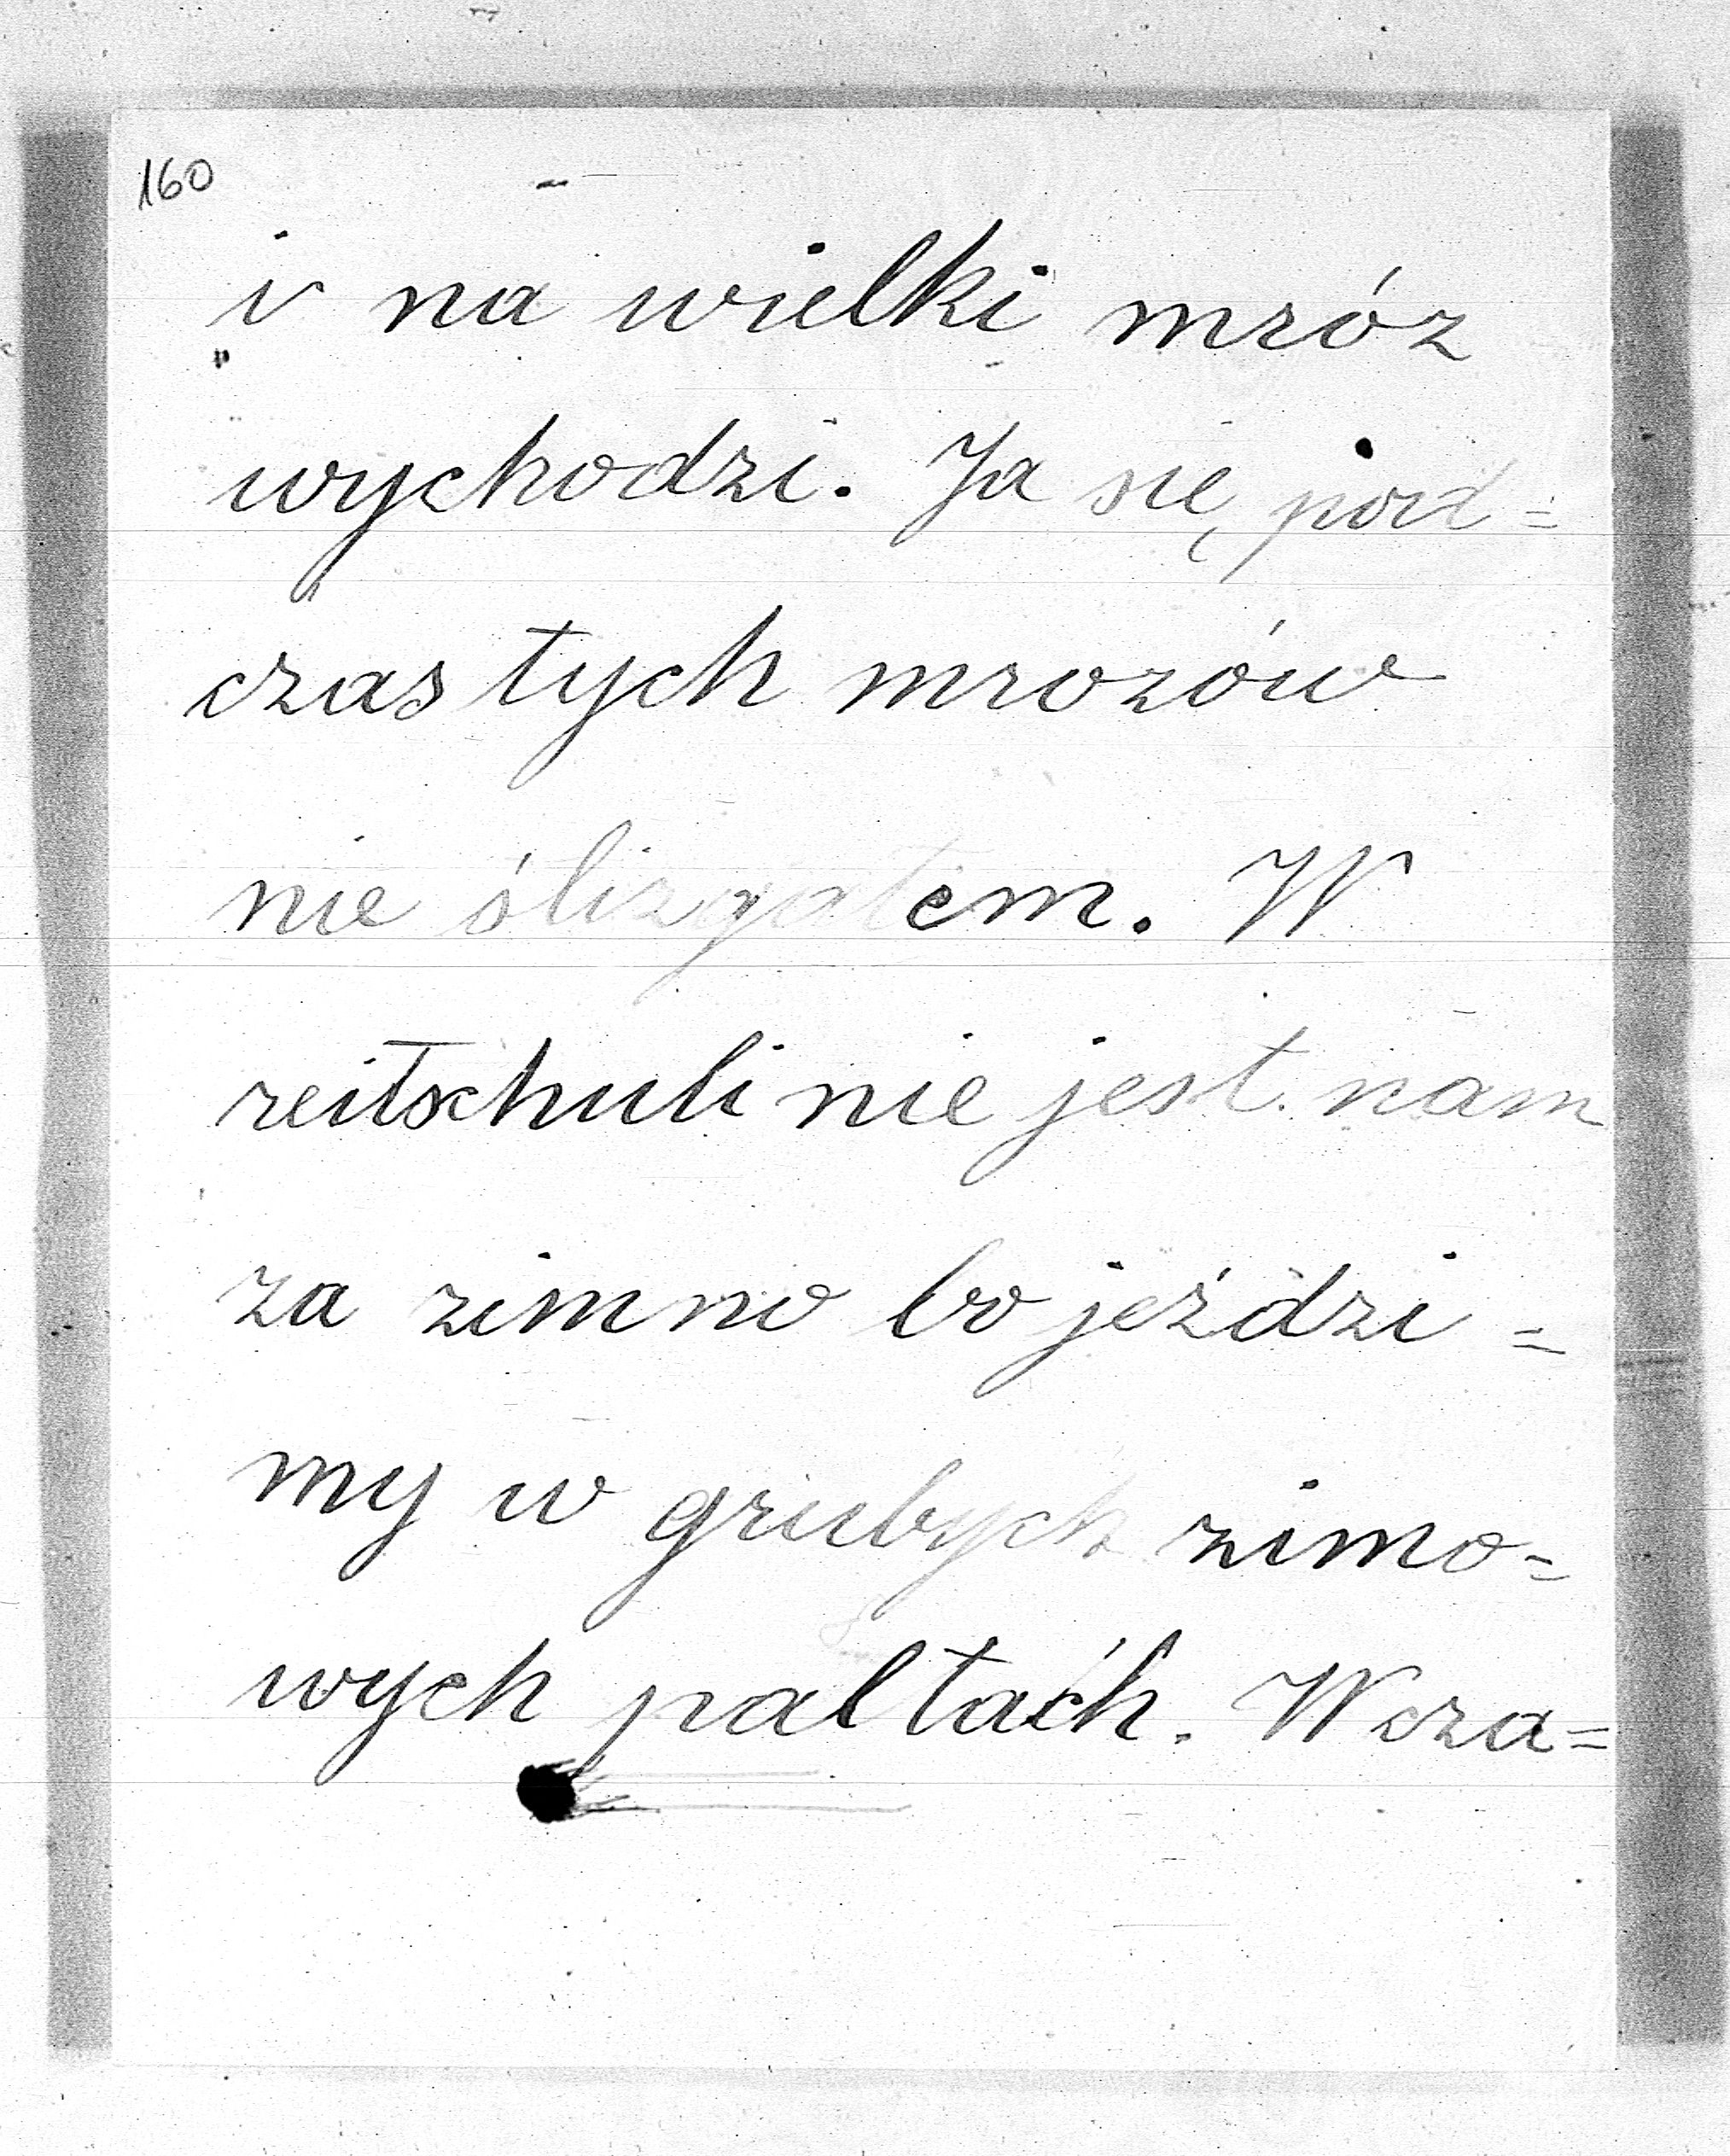 160
i na wielki mróz
wychodzi. Ja się pod=
czas tych mrozów
nie ślizgałem. W
reitschuli nie jest nam
za zimno bo jeździ=
my w grubych zimo=
wych paltach. Wcza=